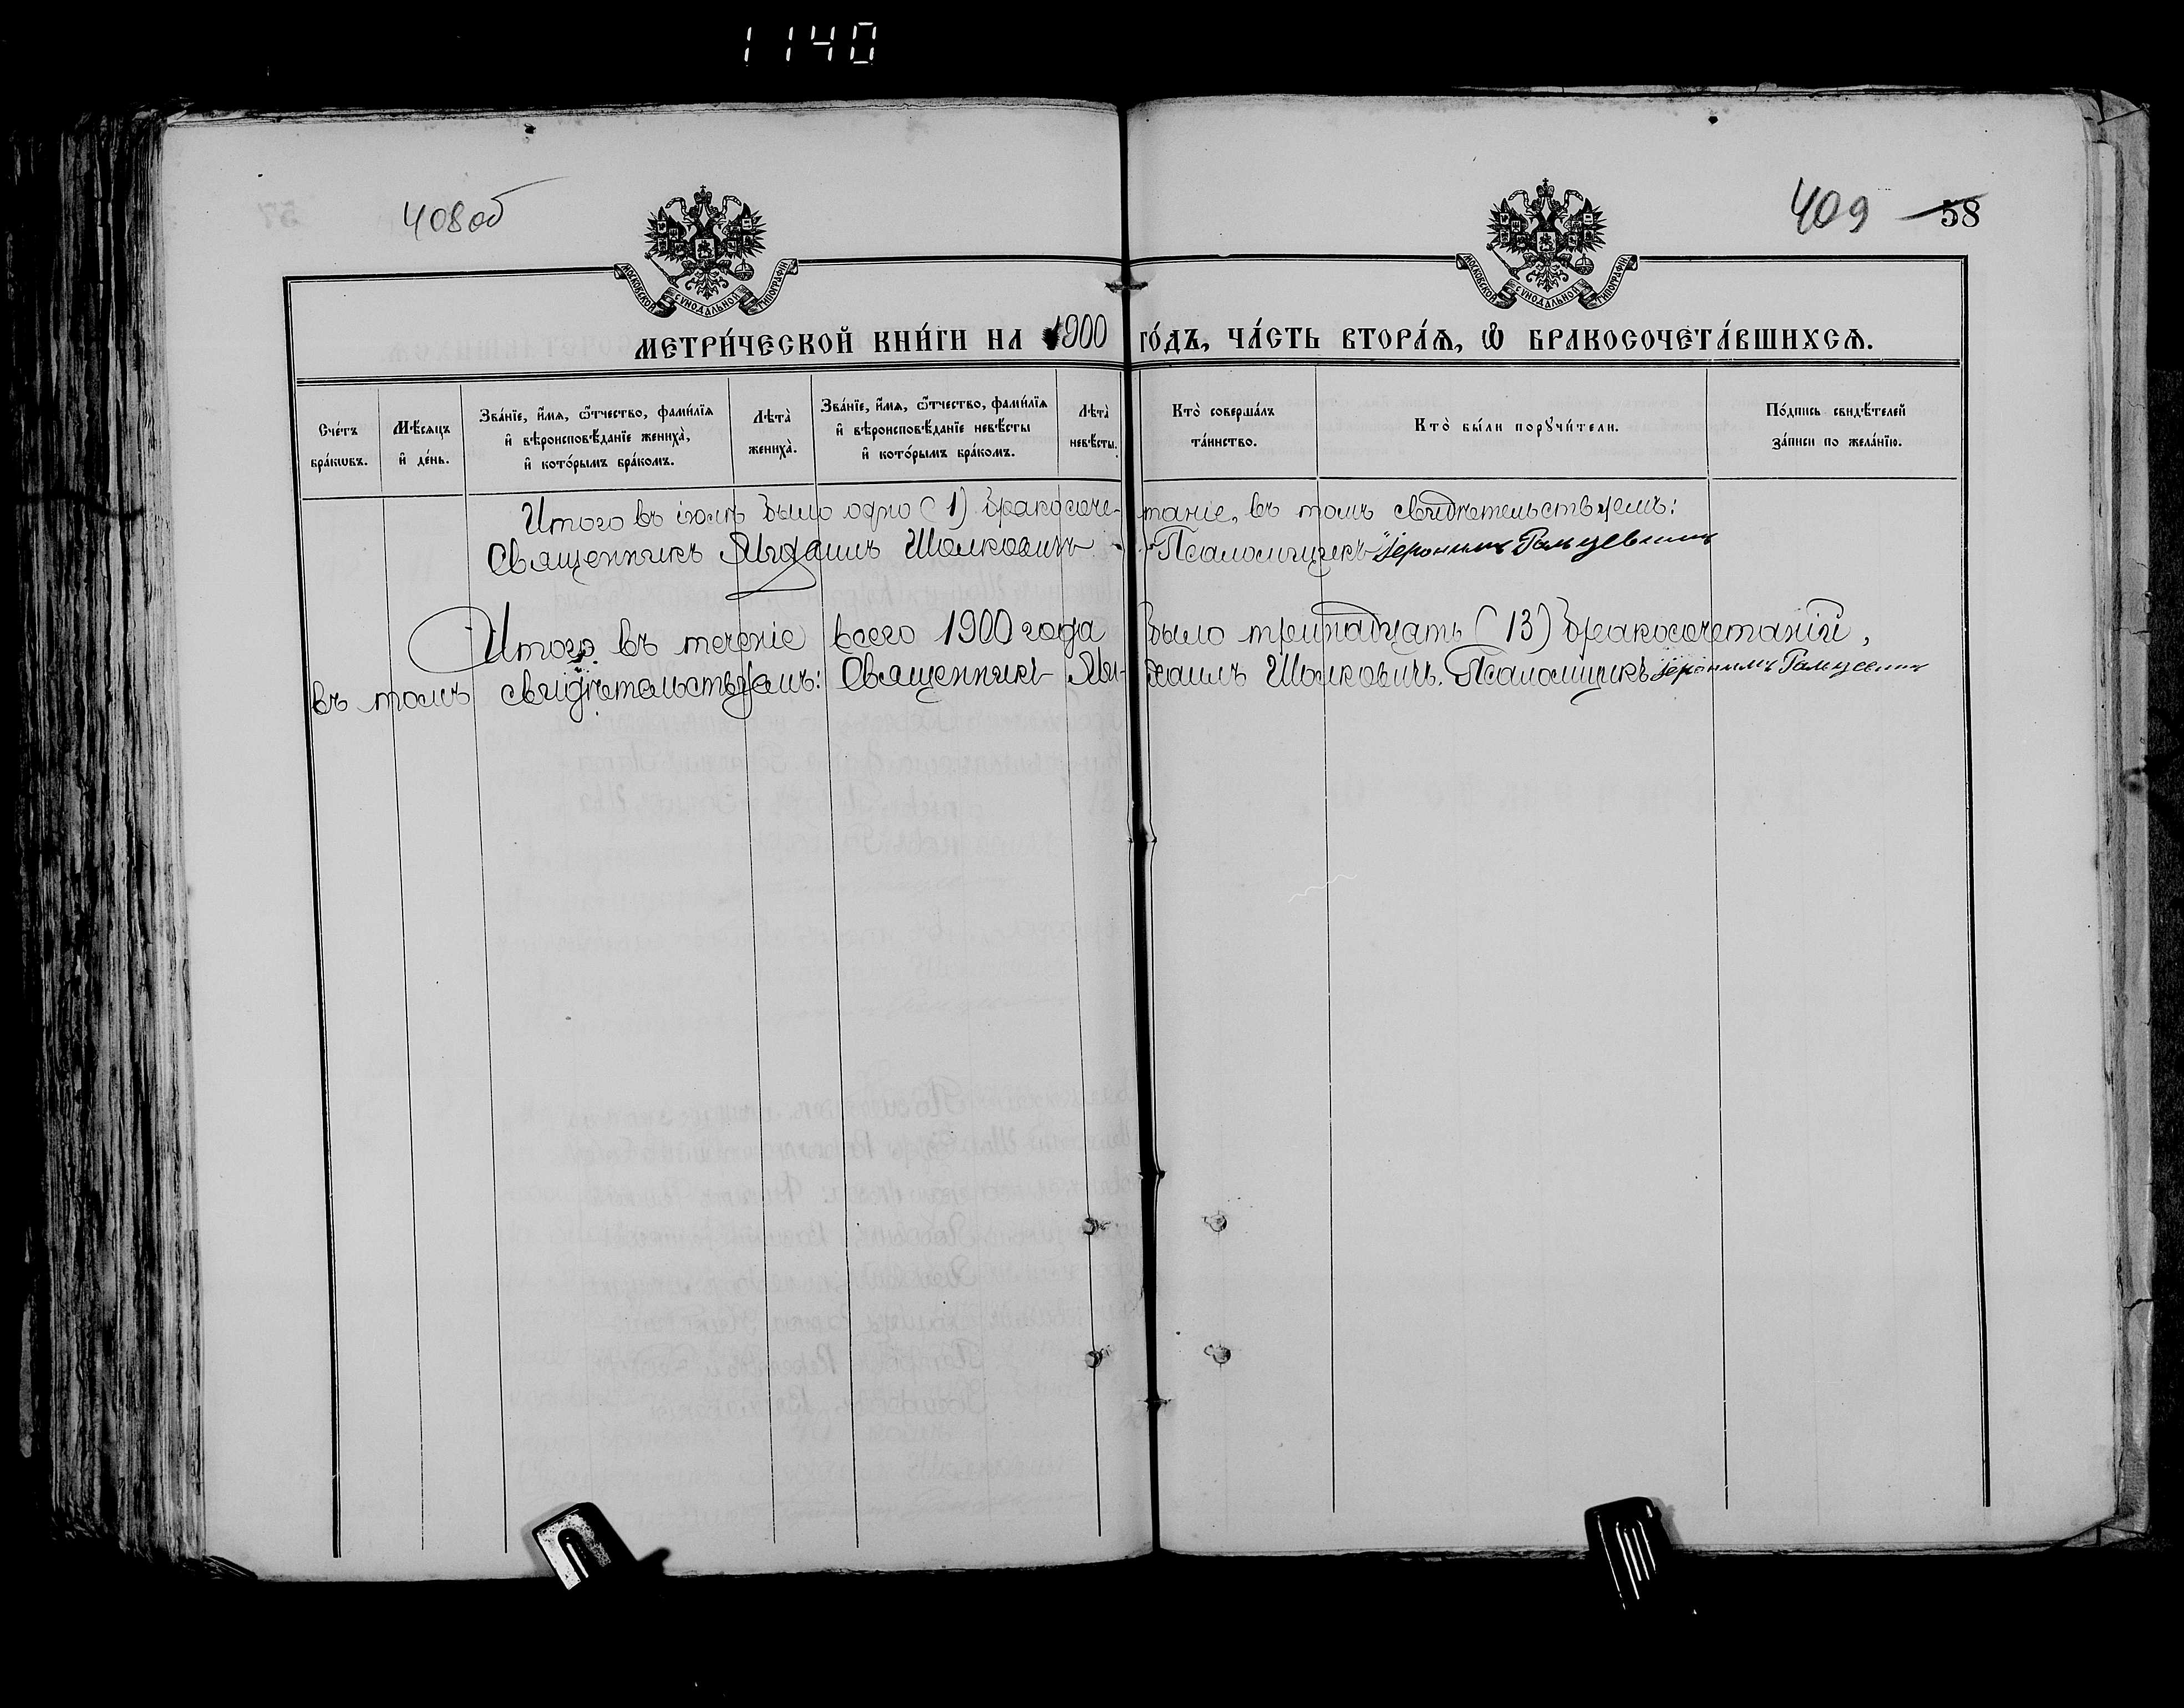 1140
408об
409 58
МОСКОВСКОЙ СѴНОДАЛЬНОЙ ТИПОГРАФІИ
МОСКОВСКОЙ СѴНОДАЛЬНОЙ ТИПОГРАФІИ
МЕТРИ́ЧЕСКОЙ КНИ́ГИ НА 1900 ГО́ДЪ, ЧА́СТЬ ВТОРА́Ѧ, Ѡ҆ БРАКОСОЧЕТА́ВШИХСѦ.
Сче́тъ бра́кѡвъ.
Мѣ́сяцъ и҆ де́нь.
Зва́нїе, и҆́мѧ, ѻ҆́тчество, фами́лїѧ и҆ вѣроисповѣ́данїе жениха̀, и҆ кото́рымъ бра́комъ.
Лѣта̀ жениха̀.
Зва́нїе, и҆́мѧ, ѻ҆́тчество, фами́лїѧ и҆ вѣроисповѣ́данїе невѣ́сты и҆ кото́рымъ бра́комъ.
Лѣта̀ невѣ́сты.
Кто̀ соверша́лъ та́инство.
Кто̀ бы́ли порꙋчи́тели.
По́дпись свидѣ́телей за́писи по жела́нїю.
Итого въ іюлѣ было одно (1) бракосоче- таніе, въ томъ свидѣтельствуемъ:
Священникъ Михаилъ Шолковичъ Псаломщикъ Іеронимъ Ральцевичъ
Итого въ теченіе всего 1900 года было тринадцать (13) бракосочетаній,
въ томъ свидѣтельствуемъ: Священникъ Ми- хаилъ Шолковичъ. Псаломщикъ Іеронимъ Ральцевичъ